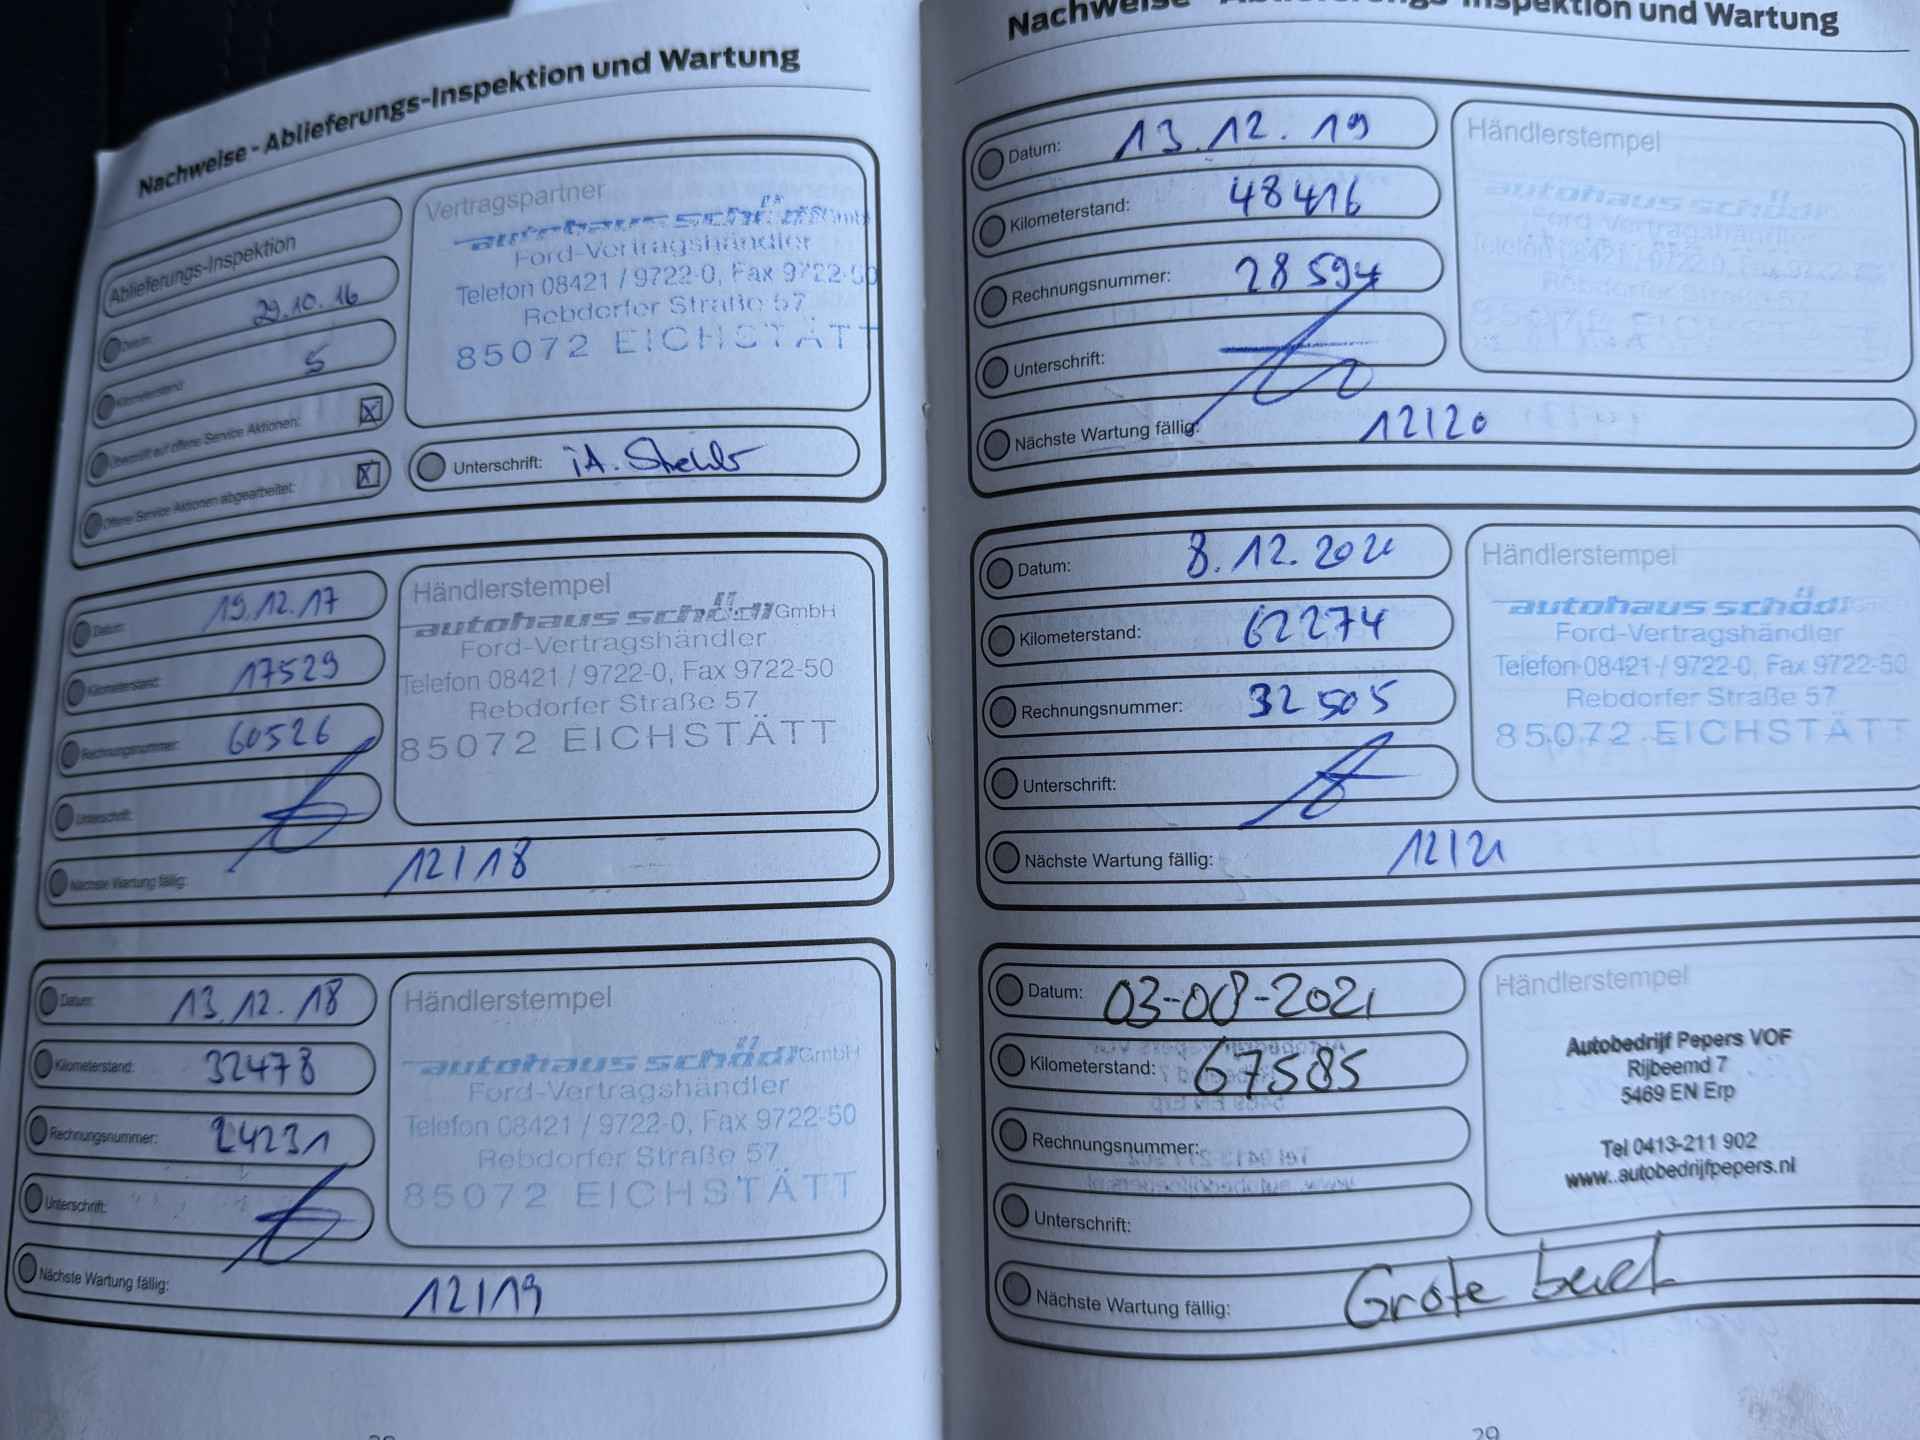 Nachweise - Ablieferungs-Inspektion und Wartung
Ablieferungs-Inspektion
Datum: 29.10.16
Kilometerstand: 5
Überprüft auf offene Service Aktionen: X
Offene Service Aktionen abgearbeitet: X
Vertragspartner
autohaus schödl GmbH
Ford-Vertragshändler
Telefon 08421 / 9722-0, Fax 9722-50
Rebdorfer Straße 57
85072 EICHSTÄTT
Unterschrift: iA.
Datum: 19.12.17
Kilometerstand: 17529
Rechnungsnummer: 60526
Unterschrift:
Händlerstempel
autohaus schödl GmbH
Ford-Vertragshändler
Telefon 08421 / 9722-0, Fax 9722-50
Rebdorfer Straße 57
85072 EICHSTÄTT
Nächste Wartung fällig: 12/18
Datum: 13.12.18
Kilometerstand: 32478
Rechnungsnummer: 24231
Unterschrift:
Händlerstempel
autohaus schödl GmbH
Ford-Vertragshändler
Telefon 08421 / 9722-0, Fax 9722-50
Rebdorfer Straße 57
85072 EICHSTÄTT
Nächste Wartung fällig: 12/19
Nachweise - Ablieferungs-Inspektion und Wartung
Datum: 13.12.19
Kilometerstand: 48416
Rechnungsnummer: 28594
Unterschrift:
Händlerstempel
autohaus schödl
Ford-Vertragshändler
Telefon 08421 / 9722-0, Fax 9722-50
Rebdorfer Straße 57
85072 EICHSTÄTT
Nächste Wartung fällig: 12/20
Datum: 8.12.2020
Kilometerstand: 62274
Rechnungsnummer: 32505
Unterschrift:
Händlerstempel
autohaus schödl
Ford-Vertragshändler
Telefon 08421 / 9722-0, Fax 9722-50
Rebdorfer Straße 57
85072 EICHSTÄTT
Nächste Wartung fällig: 12/21
Datum: 03-08-2021
Kilometerstand: 67585
Rechnungsnummer:
Unterschrift:
Händlerstempel
Autobedrijf Pepers VOF
Rijbeemd 7
5469 EN Erp
Tel 0413-211 902
www..autobedrijfpepers.nl
Nächste Wartung fällig: Grote beurt
29